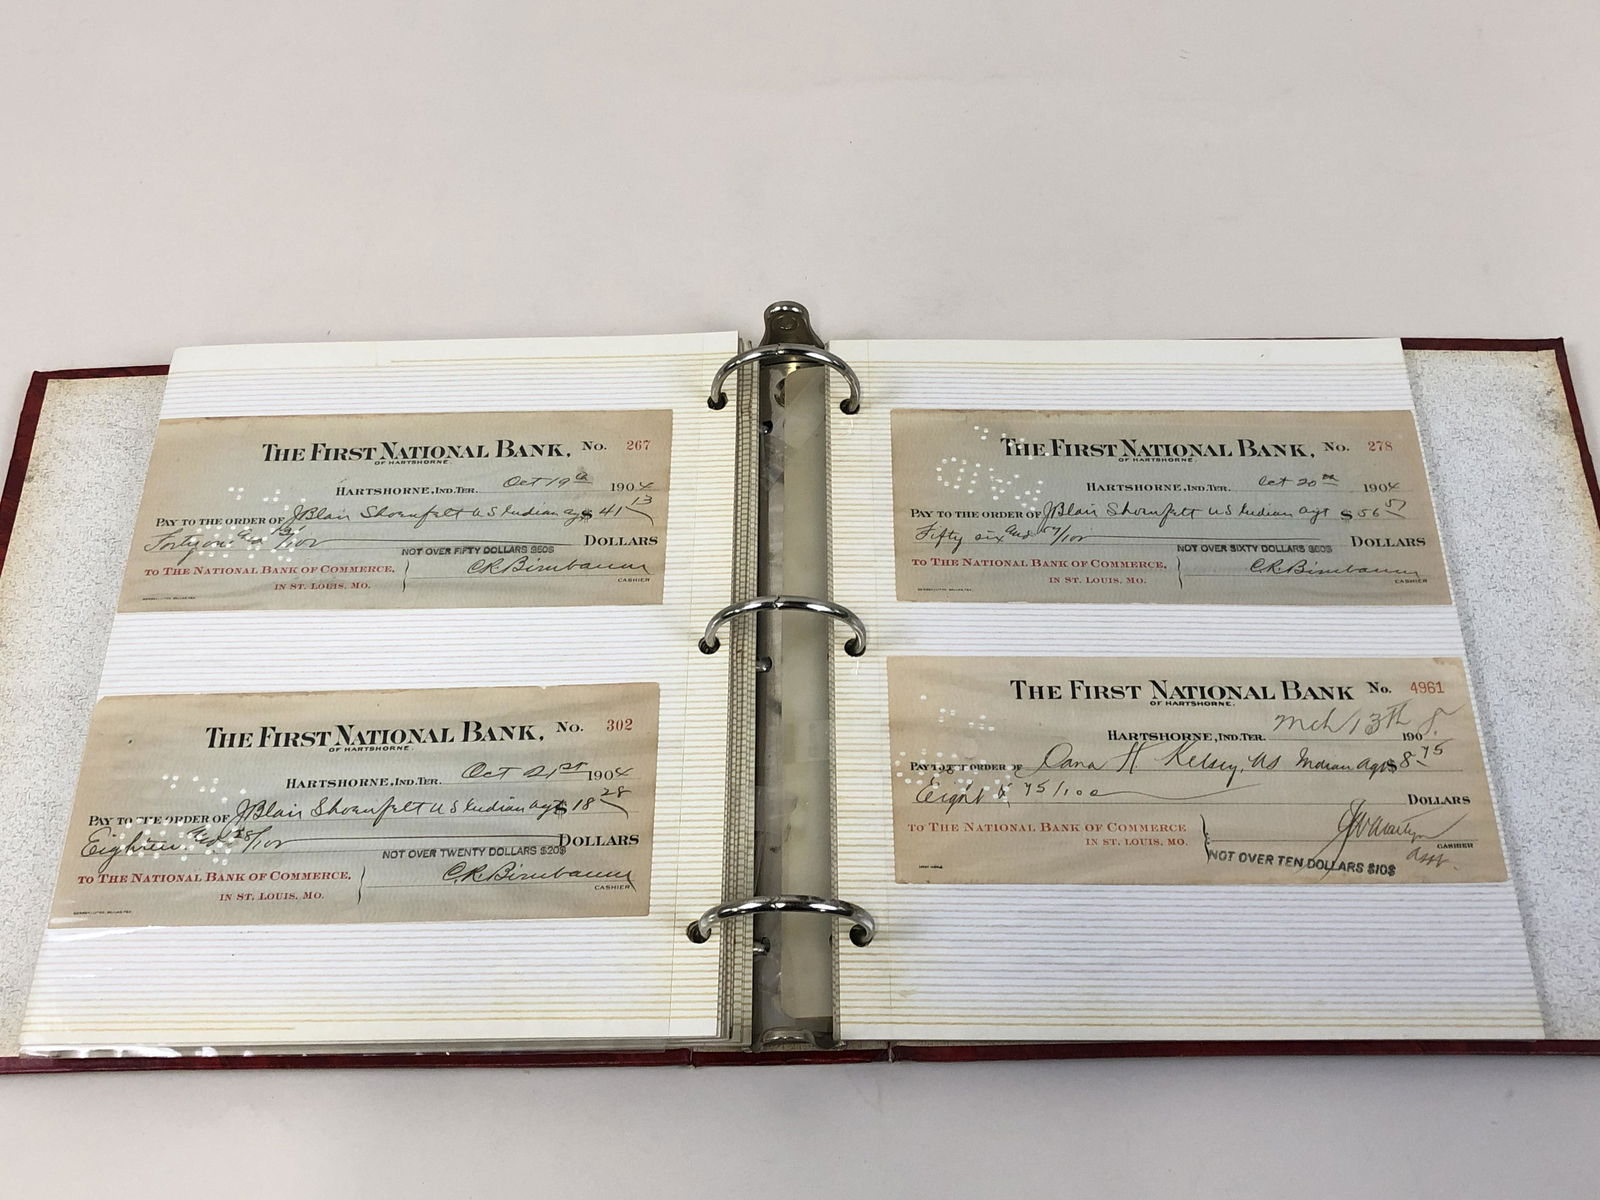 THE FIRST NATIONAL BANK, No. 267
OF HARTSHORNE.
HARTSHORNE, IND. TER. Oct 19th 1904
PAY TO THE ORDER OF J Blair Shoenfelt U S Indian agt $ 41 13
Forty one and 13/100 DOLLARS
NOT OVER FIFTY DOLLARS $50$
TO THE NATIONAL BANK OF COMMERCE, C.R. Birnbaum
IN ST. LOUIS, MO. CASHIER
THE FIRST NATIONAL BANK, No. 302
OF HARTSHORNE.
HARTSHORNE, IND. TER. Oct 21st 1904
PAY TO THE ORDER OF J Blair Shoenfelt U S Indian agt $ 18 28
Eighteen and 28/100 DOLLARS
NOT OVER TWENTY DOLLARS $20$
TO THE NATIONAL BANK OF COMMERCE, C.R. Birnbaum
IN ST. LOUIS, MO. CASHIER
THE FIRST NATIONAL BANK, No. 278
OF HARTSHORNE.
HARTSHORNE, IND. TER. Oct 20th 1904
PAY TO THE ORDER OF J Blair Shoenfelt U S Indian agt $ 56 57
Fifty six and 57/100 DOLLARS
NOT OVER SIXTY DOLLARS $60$
TO THE NATIONAL BANK OF COMMERCE, C.R. Birnbaum
IN ST. LOUIS, MO. CASHIER
THE FIRST NATIONAL BANK No. 4961
OF HARTSHORNE.
HARTSHORNE, IND. TER. Mch 13th 1908.
PAY TO THE ORDER OF Dana H Kelsey, US Indian agt $ 8 75
Eight & 75/100 DOLLARS
TO THE NATIONAL BANK OF COMMERCE
IN ST. LOUIS, MO. CASHIER
asst.
NOT OVER TEN DOLLARS $10$